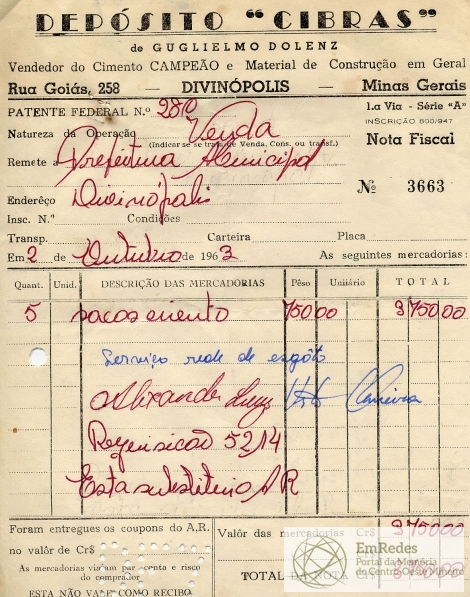 DEPÓSITO "CIBRAS"
de GUGLIELMO DOLENZ
Vendedor do Cimento CAMPEÃO e Material de Construção em Geral
Rua Goiás, 258 — DIVINÓPOLIS — Minas Gerais
PATENTE FEDERAL N.º 2810
1.a Via - Série "A"
INSCRIÇÃO 800/947
Natureza da Operação Venda
(indicar se se trata de Venda, Cons. ou transf.)
Nota Fiscal
Remete a Prefeitura Municipal
Nº 3663
Enderêço Divinópolis
Insc. N.º Condições
Transp. Carteira Placa
Em 2 de Outubro de 1963 As seguintes mercadorias:
Quant. Unid. DESCRIÇÃO DAS MERCADORIAS Pêso Unitário TOTAL
5 sacos cimento 750,00 3750,00
Serviço rede de esgôto
Alexandre
Requisicao 5214
Esta substituio A R
Foram entregues os coupons do A,R.
no valor de Cr$
Valor das mercadorias Cr$ 3750,00
As mercadorias viajam por conta e risco
do comprador
TOTAL DA NOTA
ESTA NÃO VALE COMO RECIBO
EmRedes
Portal da Memória
do Centro-Oeste Mineiro